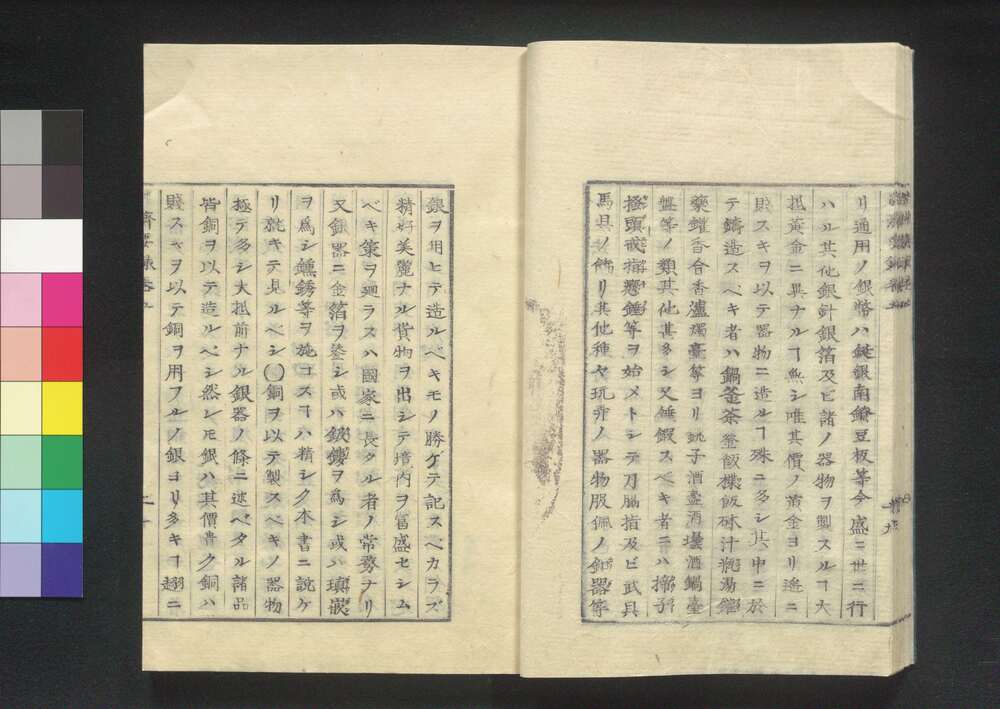 リ通用ノ銀幣ハ鋌銀南鐐豆板等今盛ニ世ニ行
ハル其他銀針銀箔及ヒ諸ノ器物ヲ製スルヿ大
抵黄金ニ異ナルヿ無シ唯其價ノ黄金ヨリ遙ニ
賤スキヲ以テ器物ニ造ルヿ殊ニ多シ其中ニ於
テ鑄造スベキ者ハ鍋釜茶釜飯櫃飯砵汁瓶湯鑵
藥鑵香合香爐燭臺等ヨリ銚子酒壷酒壜酒鍋臺
盤等ノ類其他甚多シ又錘鍜スベキ者ニハ搔子
搔頭戒指懸錘等ヲ始メトシテ刀脇指及ビ武具
馬具ノ飾リ其他種々玩弄ノ器物服佩ノ鈿器等
銀ヲ用ヒテ造ルベキモノ勝ゲテ記スベカラズ
精好美麗ナル貨物ヲ出シテ境内ヲ富盛セシム
ベキ策ヲ廻ラスハ國家ニ長タル者ノ常務ナリ
又銀器ニ金箔ヲ塗シ或ハ鈸鏤ヲ爲シ或ハ瓖嵌
ヲ爲シ鑂銹等ヲ施コスヿハ精シク本書ニ説ケ
リ就キテ見ルベシ◯銅ヲ以テ製スベキノ器物
極テ多シ大抵前ナル銀器ノ條ニ述ベタル諸品
皆銅ヲ以テ造ルベシ然レモ銀ハ其價貴ク銅ハ
賤スキヲ以テ銅ヲ用フルノ銀ヨリ多キヿ趐ニ